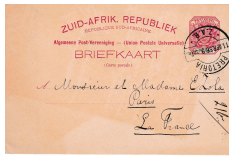 ZUID-AFRIK. REPUBLIEK
REPUBLIQUE SUD-AFRICAINE
Algemeene Post-Vereeniging — (Union Postale Universelle)
BRIEFKAART
(Carte postale)
PRETORIA
A Monsieur et Madame
Paris
La France